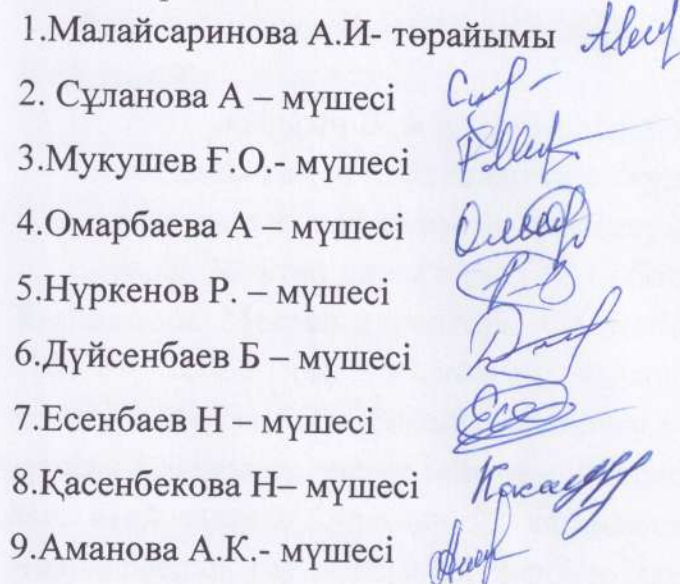 1.Малайсаринова А.И- төрайымы
2. Сұланова А – мүшесі
3.Мукушев Ғ.О.- мүшесі
4.Омарбаева А – мүшесі
5.Нүркенов Р. – мүшесі
6.Дүйсенбаев Б – мүшесі
7.Есенбаев Н – мүшесі
8.Қасенбекова Н– мүшесі
9.Аманова А.К.- мүшесі